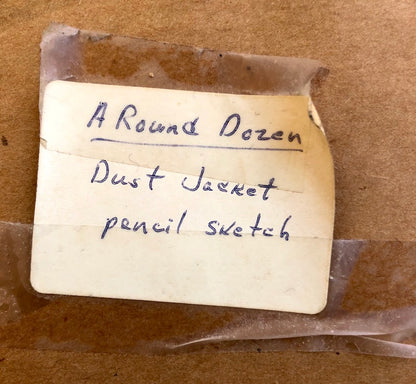 A Round Dozen
Dust Jacket
pencil sketch